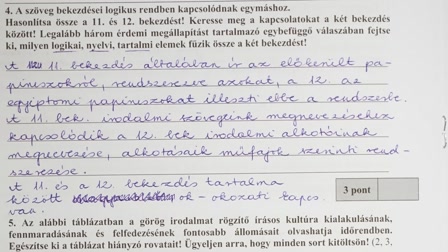 4. A szöveg bekezdései logikus rendben kapcsolódnak egymáshoz.
Hasonlítsa össze a 11. és 12. bekezdést! Keresse meg a kapcsolatokat a két bekezdés
között! Legalább három érdemi megállapítást tartalmazó egybefüggő válaszában fejtse
ki, milyen logikai, nyelvi, tartalmi elemek fűzik össze a két bekezdést!
A 11. bekezdés általában ír az előkerült pa-
piruszokról, rendszerezve azokat, a 12. az
egyiptomi papiruszokat illeszti ebbe a rendszerbe.
A 11. bek. irodalmi szövegeink megnevezéséhez
kapcsolódik a 12. bek. irodalmi alkotóinak
megnevezése, alkotásaik műfajok szerinti rend-
szerezése.
A 11. és a 12. bekezdés tartalma
között ok-okozati kapcs.
van.
3 pont
5. Az alábbi táblázatban a görög irodalmat rögzítő írásos kultúra kialakulásának,
fennmaradásának és felfedezésének fontosabb állomásait olvashatja időrendben.
Egészítse ki a táblázat hiányzó rovatait! Ügyeljen arra, hogy minden sort kitöltsön! (2, 3,